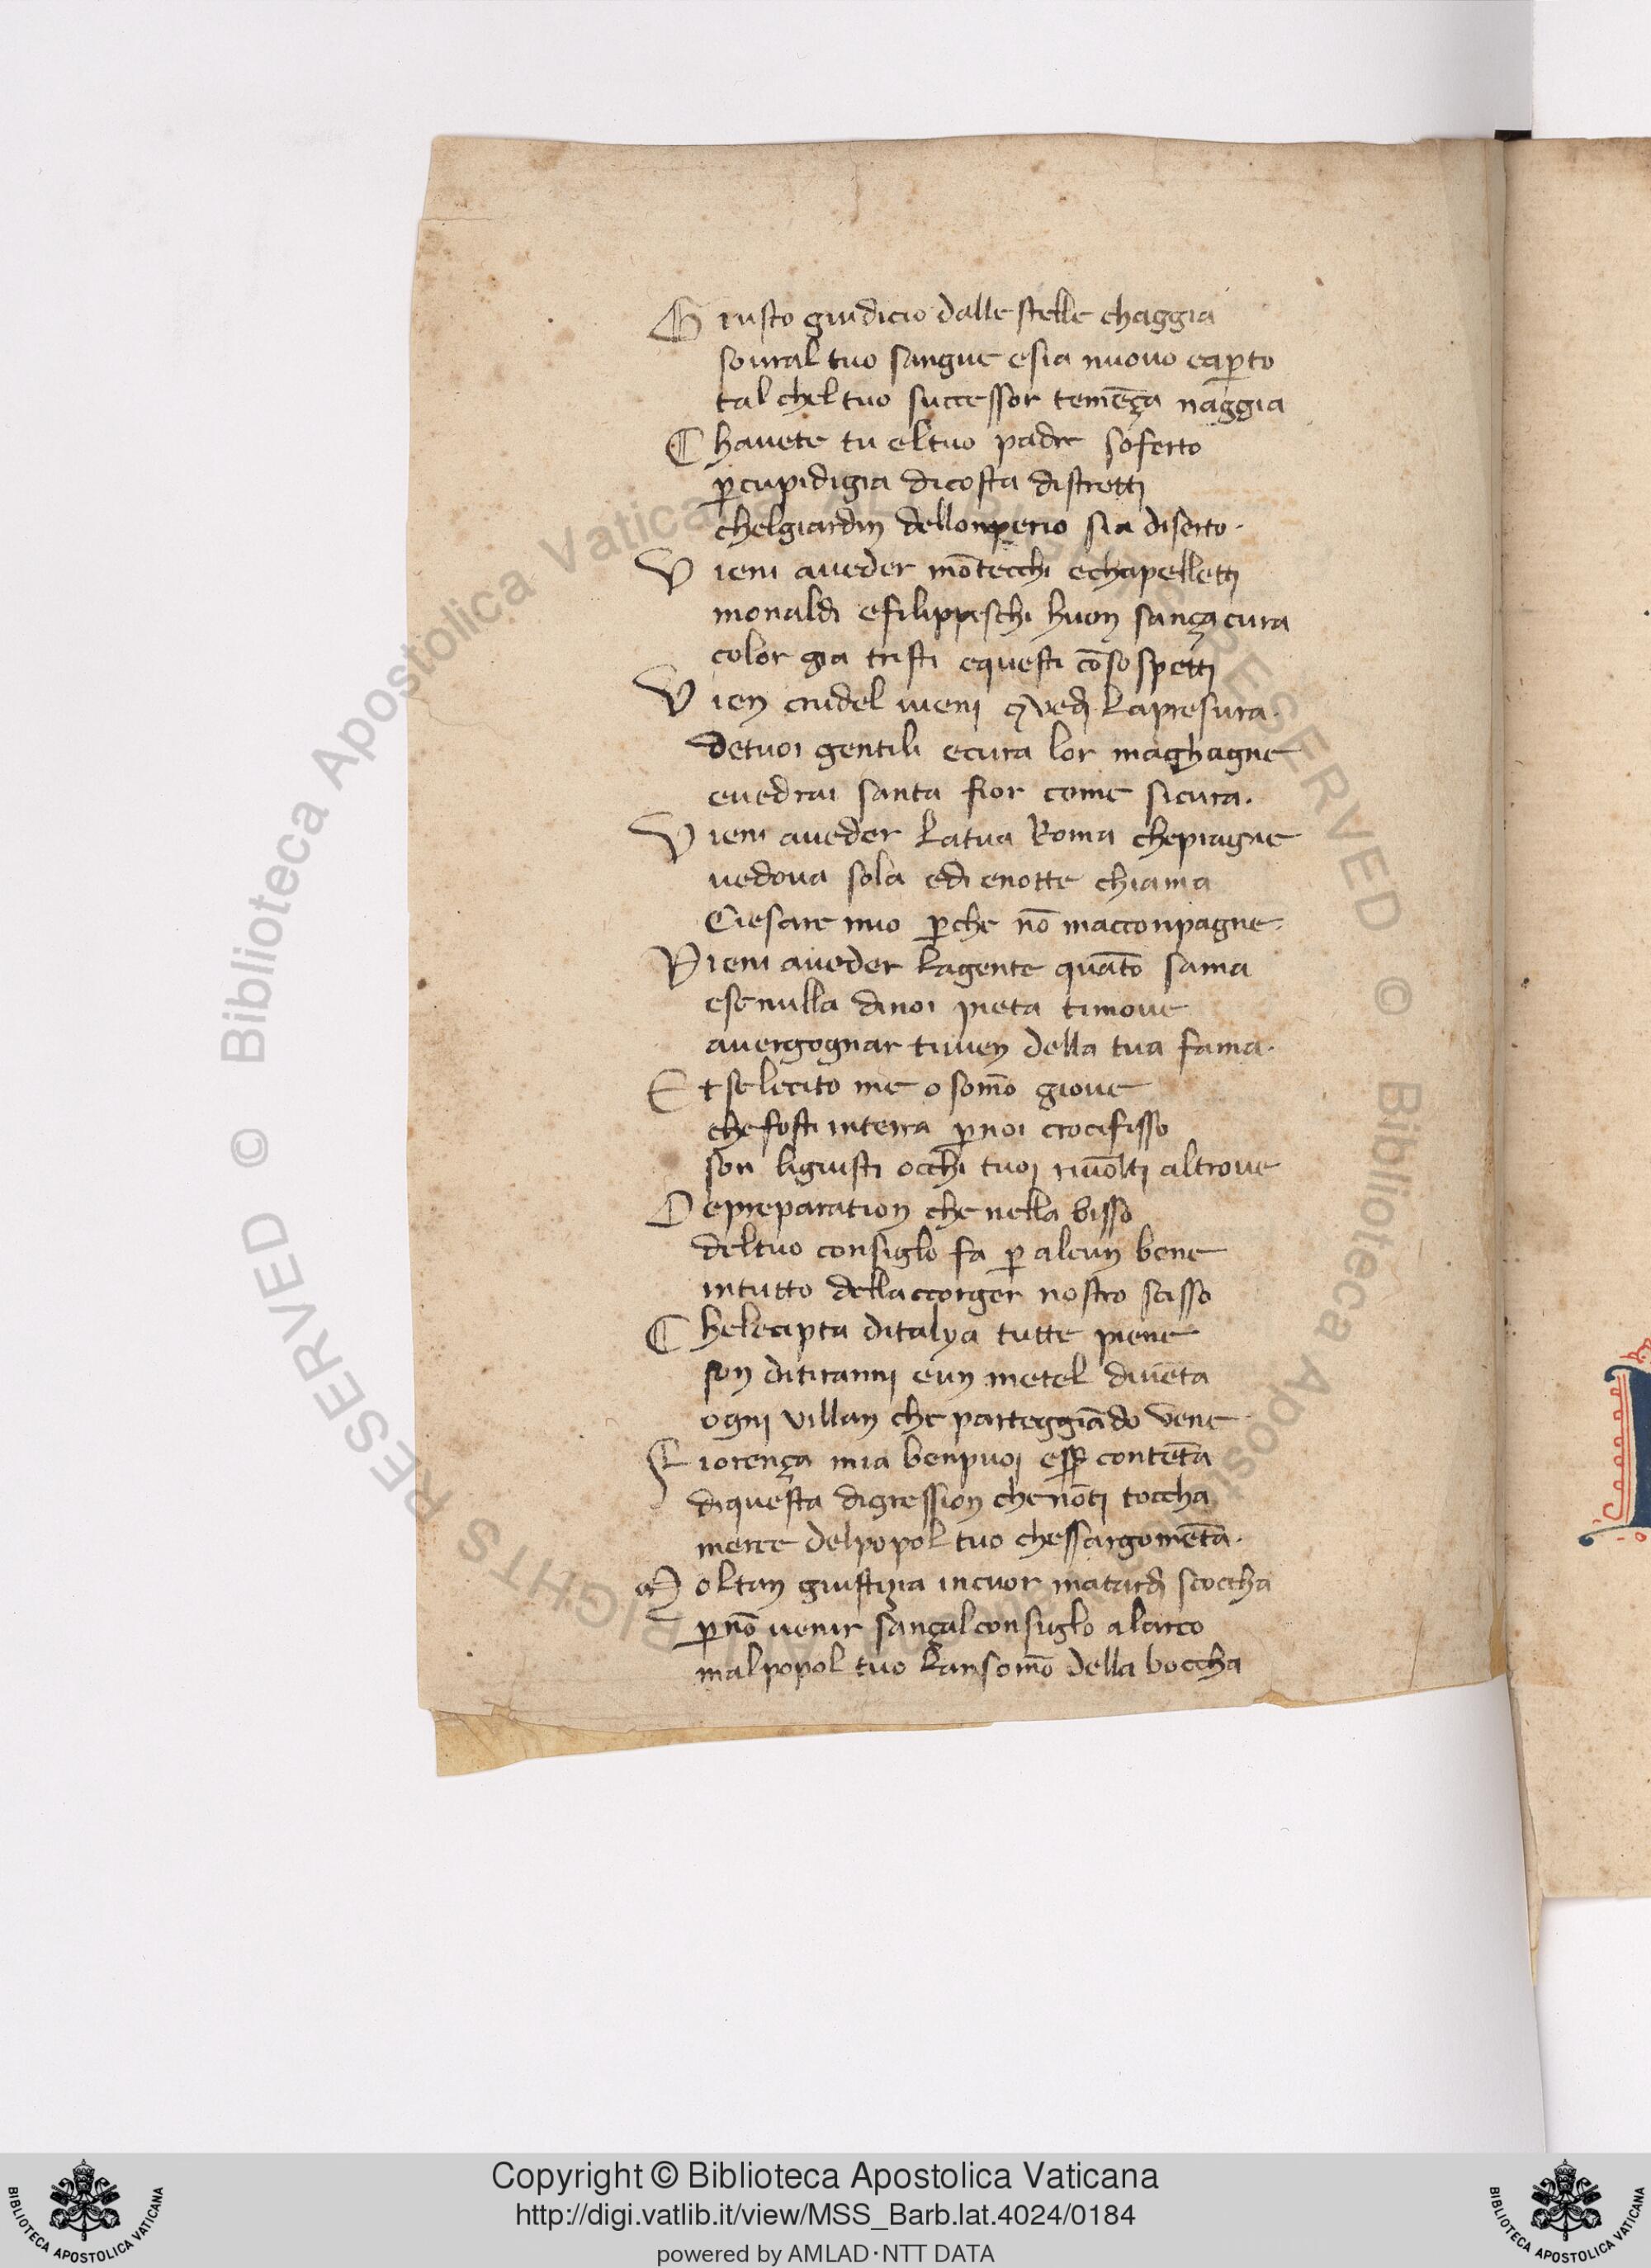 Giusto giudicio dalle stelle chaggia
soural tuo sangue esia nuouo eaꝑto
tal chel tuo successor temēça naggia
Chauete tu eltuo padre soferto
ꝑcupidigia dicosta distretti
chelgiardin dellonperio sia diserto·
Vieni aueder mōtecchi echapelletti
monaldi efilippeschi huon sança cura
color gia tristi equesti cōsospetti
Vien crudel uieni & uedi lapresura·
detuoi gentili ecura lor maghagne
euedrai santa fior come sicura·
Vieni aueder latua Roma chepiagne
uedoua sola edi enotte chiama
Ciesare mio ꝑche nō macconpagne·
Vieni aueder lagente quāto sama
esenulla dinoi pieta timoue
auergognar tiuien della tua fama·
Et selicito me o somō gioue
chefosti interra ꝑnoi crocifisso
son ligiusti occhi tuoi riuolti altroue
Oepreparation che nella bisso
deltuo consiglo fa ꝑ alcun bene
intutto dellaccorger nostro scisso
Chelecipta ditalya tutte piene
son ditiranni eun metel diuēta
ogni villan che parteggiādo vene
Fiorença mia benpuoi esser contēta
diquesta digression che nōti toccha
merce delpopol tuo chessargomēta·
Moltan giustizia incuor matardi scoccha
ꝑnō uenir sançalconsiglo alarco
malpopol tuo lansomō della boccha
Copyright © Biblioteca Apostolica Vaticana
http://digi.vatlib.it/view/MSS_Barb.lat.4024/0184
powered by AMLAD·NTT DATA
BIBLIOTECA APOSTOLICA VATICANA
BIBLIOTECA APOSTOLICA VATICANA